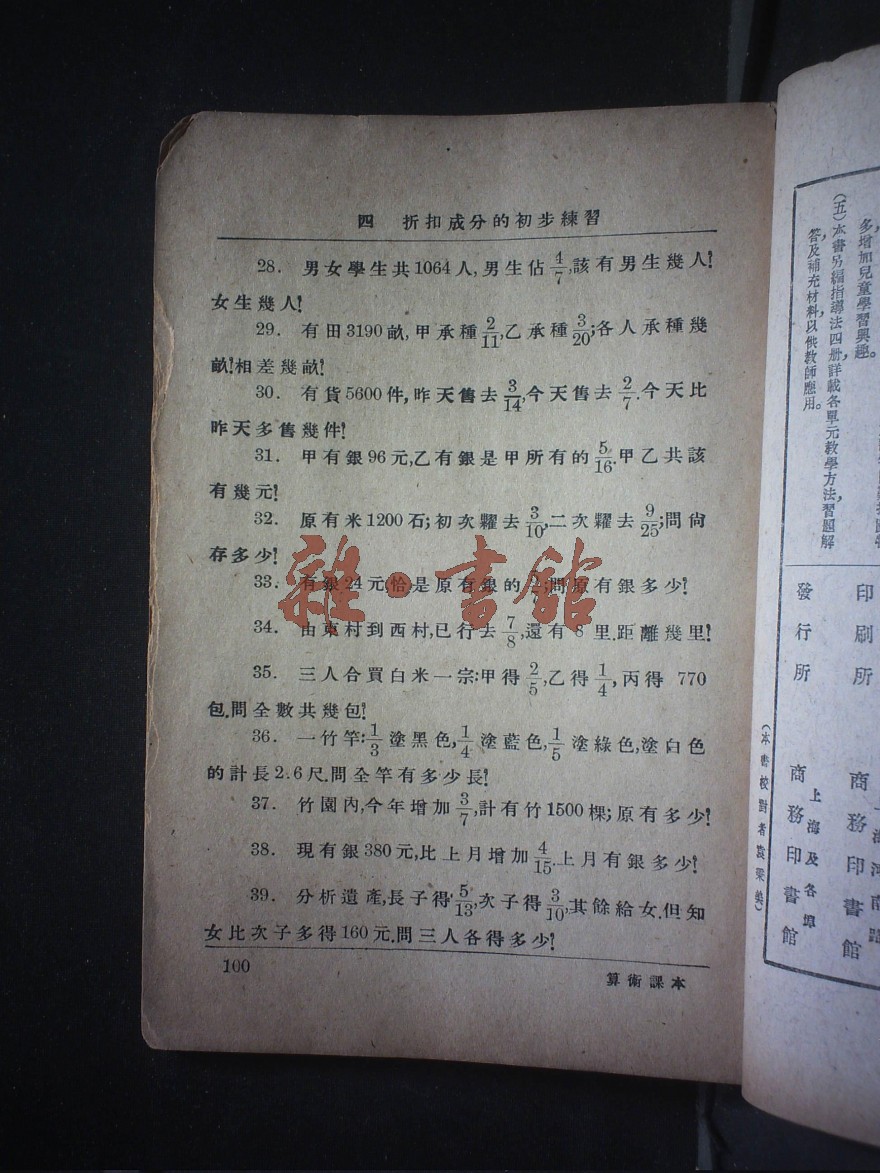 四 折扣成分的初步練習
28. 男女學生共1064人,男生佔4/7,該有男生幾人?
女生幾人?
29. 有田3190畝,甲承種2/11,乙承種3/20;各人承種幾
畝?相差幾畝?
30. 有貨5600件,昨天售去3/14,今天售去2/7.今天比
昨天多售幾件?
31. 甲有銀96元,乙有銀是甲所有的5/16.甲乙共該
有幾元?
32. 原有米1200石;初次糶去3/10,二次糶去9/25;問尙
存多少?
33. 有銀24元,恰是原有銀的;問原有銀多少?
34. 由東村到西村,已行去7/8,還有8里.距離幾里?
35. 三人合買白米一宗:甲得2/5,乙得1/4,丙得 770
包.問全數共幾包?
36. 一竹竿:1/3塗黑色,1/4塗藍色,1/5塗綠色,塗白色
的計長2.6尺.問全竿有多少長?
37. 竹園內,今年增加3/7,計有竹1500棵;原有多少?
38. 現有銀380元,比上月增加4/15.上月有銀多少?
39. 分析遺產,長子得5/13,次子得3/10,其餘給女.但知
女比次子多得160元.問三人各得多少?
100
算術課本
雜·書館
多增加兒童學習興趣。
(五)本書另編指導法四册,詳載各單元敎學方法,習題解
答及補充材料,以供敎師應用。
印刷所
商務印書館
發行所
上海及各埠
商務印書館